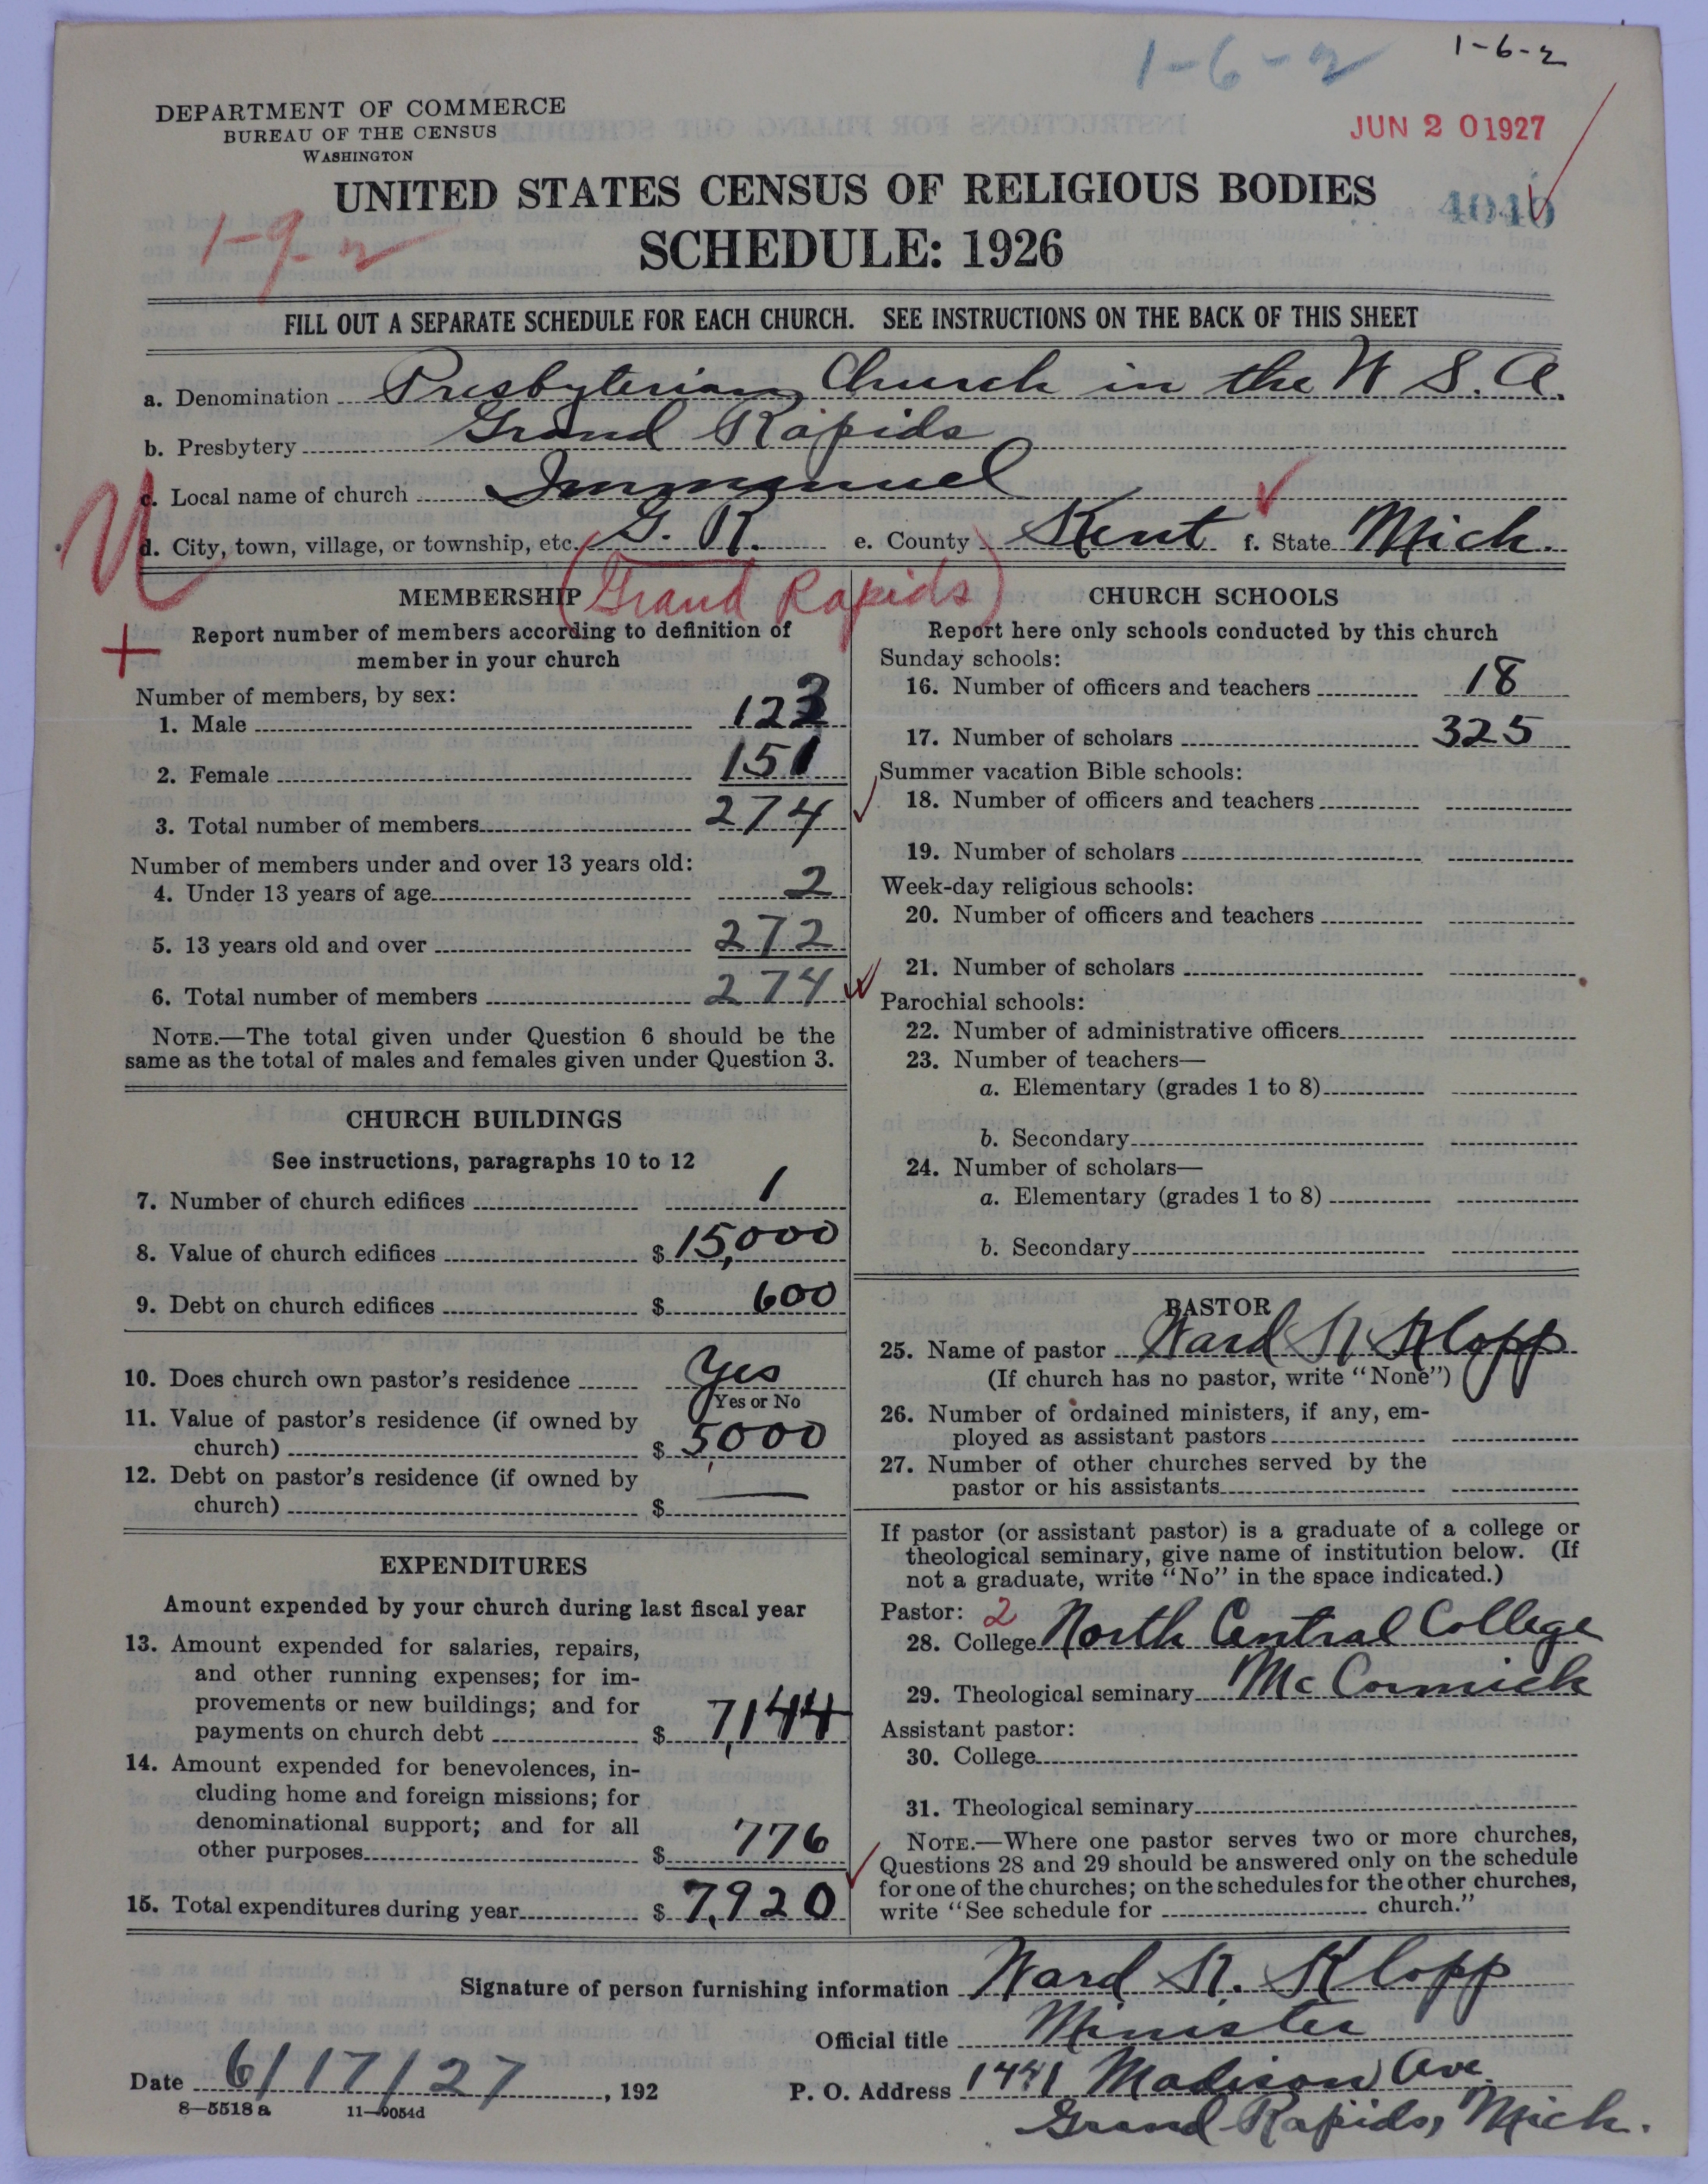 1-6-2 1-6-2
DEPARTMENT OF COMMERCE
BUREAU OF THE CENSUS
WASHINGTON
JUN 20 1927
UNITED STATES CENSUS OF RELIGIOUS BODIES
1-9-2
SCHEDULE: 1926
FILL OUT A SEPARATE SCHEDULE FOR EACH CHURCH. SEE INSTRUCTIONS ON THE BACK OF THIS SHEET
a. Denomination Presbyterian Church in the U S. A.
b. Presbytery Grand Rapids
c. Local name of church Immanuel
d. City, town, village, or township, etc. G. R. e. County Kent f. State Mich.
(Grand Rapids)
MEMBERSHIP
Report number of members according to definition of
member in your church
Number of members, by sex:
1. Male 123
2. Female 151
3. Total number of members 274
Number of members under and over 13 years old:
4. Under 13 years of age 2
5. 13 years old and over 272
6. Total number of members 274
NOTE.—The total given under Question 6 should be the
same as the total of males and females given under Question 3.
CHURCH BUILDINGS
See instructions, paragraphs 10 to 12
7. Number of church edifices 1
8. Value of church edifices $ 15,000
9. Debt on church edifices $ 600
10. Does church own pastor's residence Yes
Yes or No
11. Value of pastor's residence (if owned by
church) $ 5000
12. Debt on pastor's residence (if owned by
church) $ —
EXPENDITURES
Amount expended by your church during last fiscal year
13. Amount expended for salaries, repairs,
and other running expenses; for im-
provements or new buildings; and for
payments on church debt $ 7,144
14. Amount expended for benevolences, in-
cluding home and foreign missions; for
denominational support; and for all
other purposes $ 776
15. Total expenditures during year $ 7,920
CHURCH SCHOOLS
Report here only schools conducted by this church
Sunday schools:
16. Number of officers and teachers 18
17. Number of scholars 325
Summer vacation Bible schools:
18. Number of officers and teachers
19. Number of scholars
Week-day religious schools:
20. Number of officers and teachers
21. Number of scholars
Parochial schools:
22. Number of administrative officers
23. Number of teachers—
a. Elementary (grades 1 to 8)
b. Secondary
24. Number of scholars—
a. Elementary (grades 1 to 8)
b. Secondary
PASTOR
25. Name of pastor Ward R. Klopp
(If church has no pastor, write "None")
26. Number of ordained ministers, if any, em-
ployed as assistant pastors
27. Number of other churches served by the
pastor or his assistants
If pastor (or assistant pastor) is a graduate of a college or
theological seminary, give name of institution below. (If
not a graduate, write "No" in the space indicated.)
Pastor: 2
28. College North Central College
29. Theological seminary McCormick
Assistant pastor:
30. College
31. Theological seminary
NOTE.—Where one pastor serves two or more churches,
Questions 28 and 29 should be answered only on the schedule
for one of the churches; on the schedules for the other churches,
write "See schedule for church."
Signature of person furnishing information Ward R. Klopp
Official title Minister
Date 6/17/27, 192 P. O. Address 1441 Madison Ave.
Grand Rapids, Mich.
8—5518 a 11—9054d